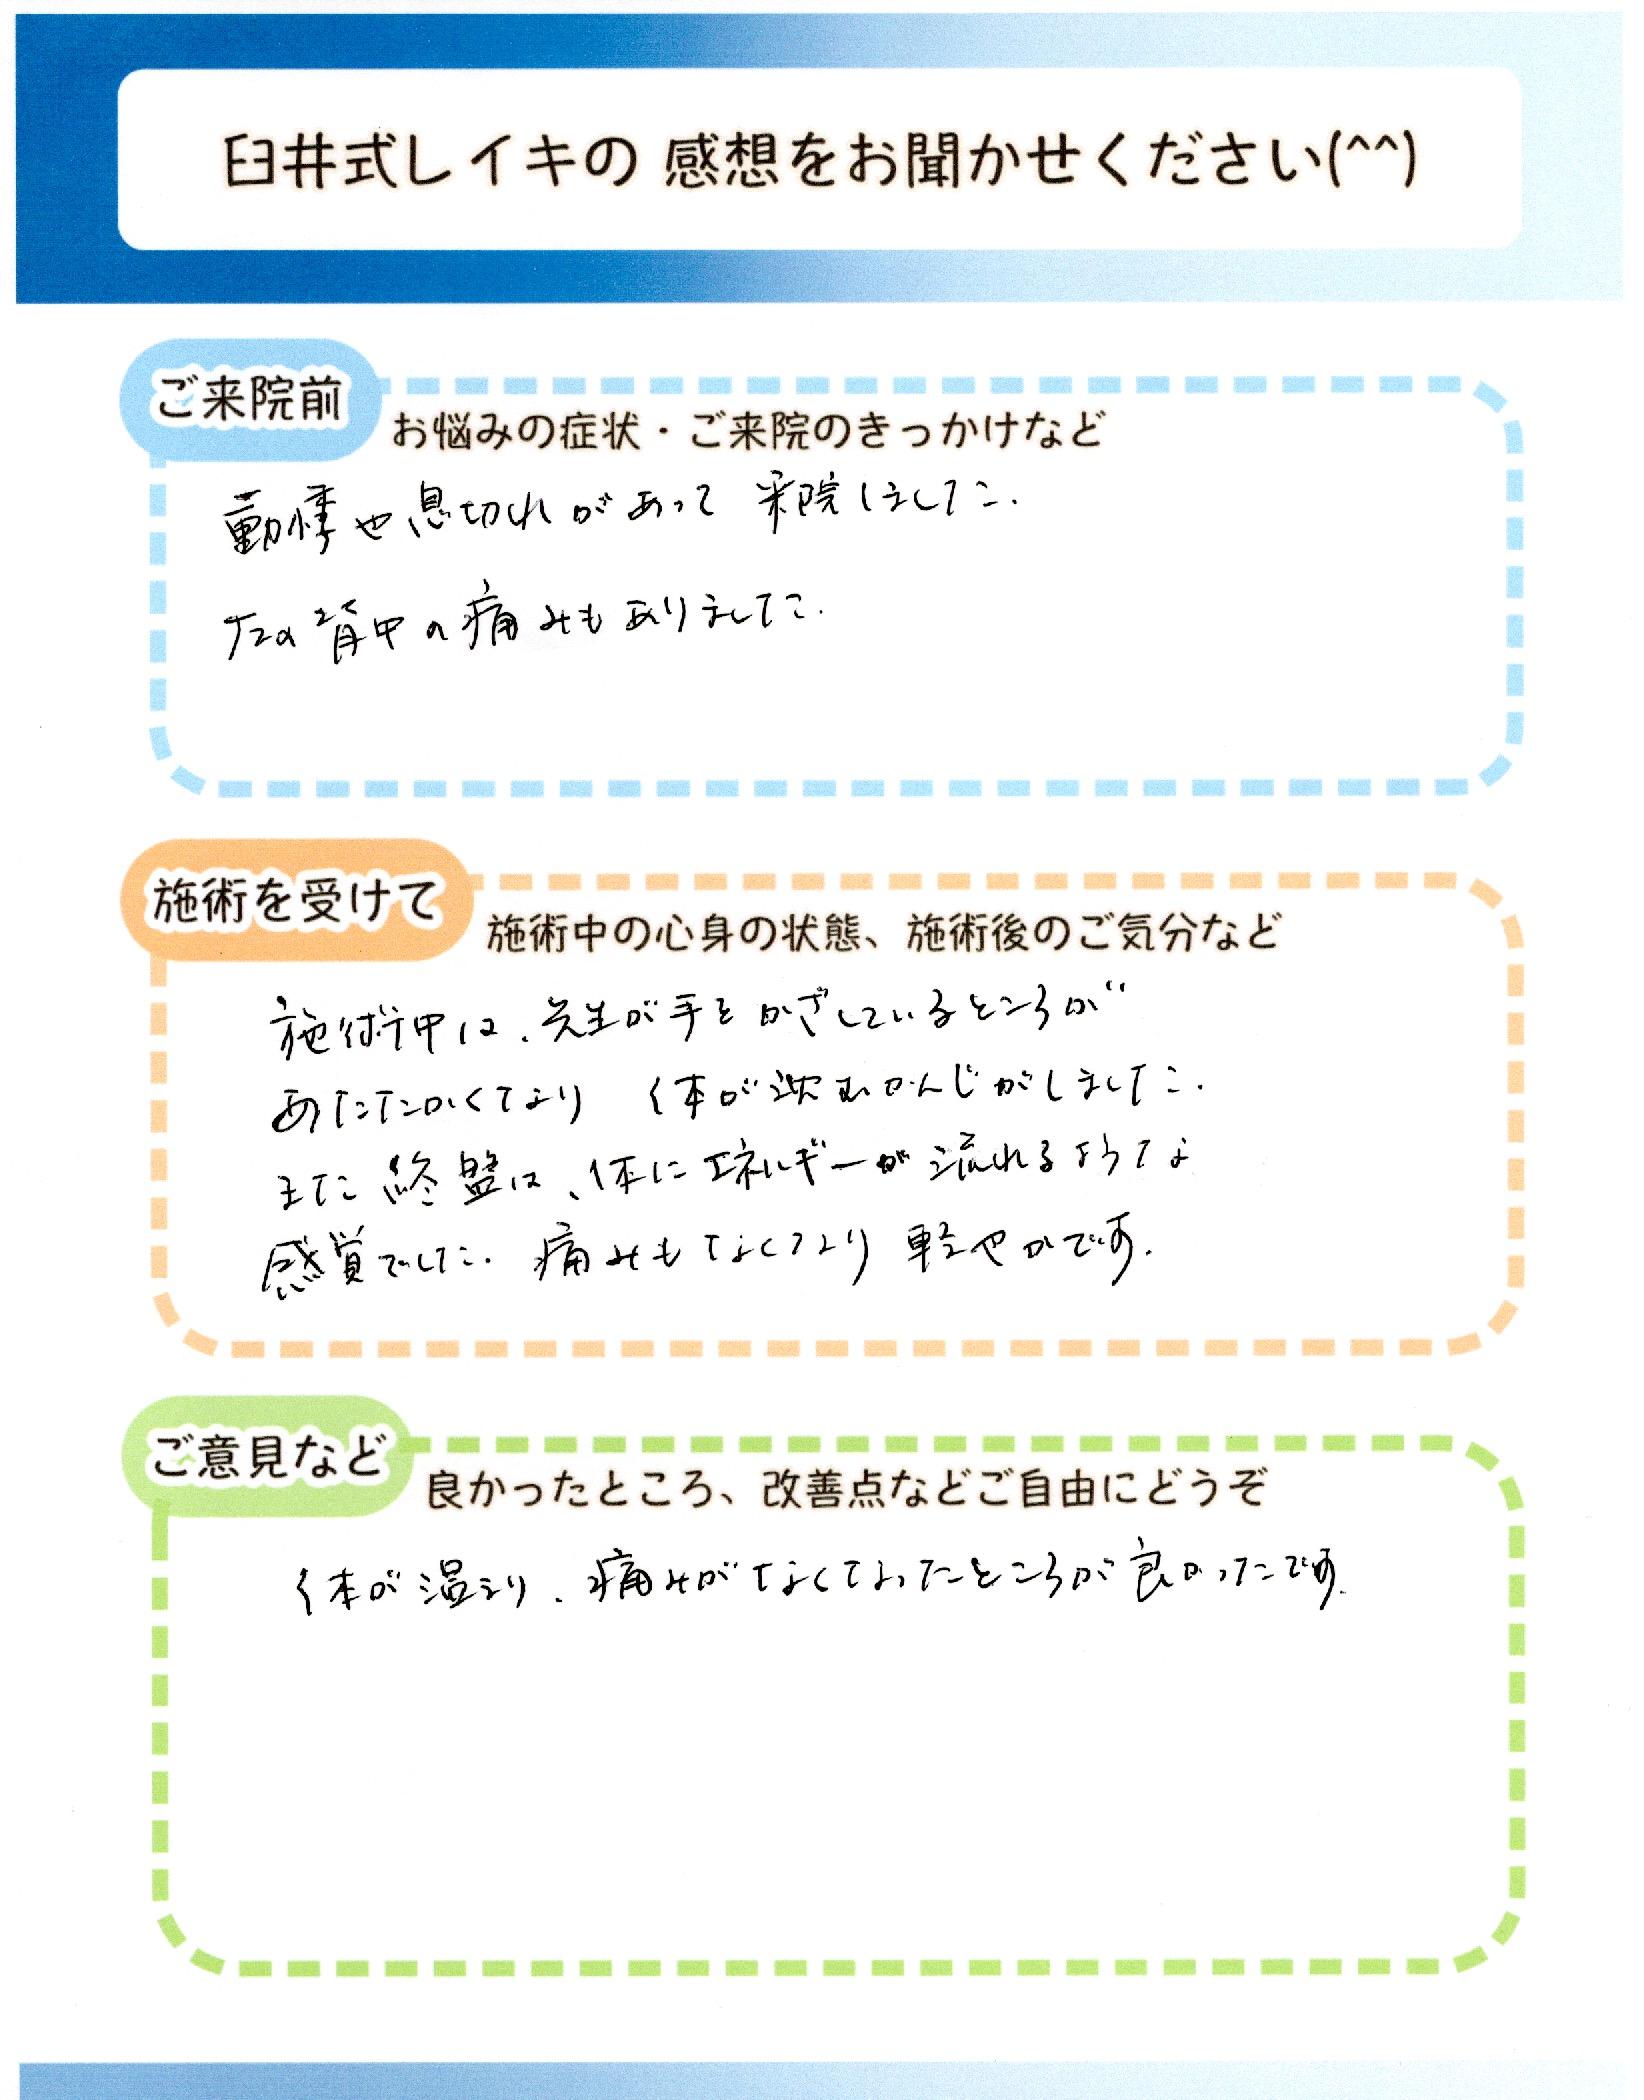 臼井式レイキの 感想をお聞かせください(^^)
ご来院前
お悩みの症状・ご来院のきっかけなど
動悸や息切れがあって 来院しました.
左の背中の痛みもありました.
施術を受けて
施術中の心身の状態、施術後のご気分など
施術中は、先生が手をかざしているところが
あたたかくなり 体が沈むかんじがしました.
また終盤は、体にエネルギーが流れるような
感覚でした. 痛みもなくなり 軽やかです.
ご意見など
良かったところ、改善点などご自由にどうぞ
体が温まり、痛みがなくなったところが良かったです.